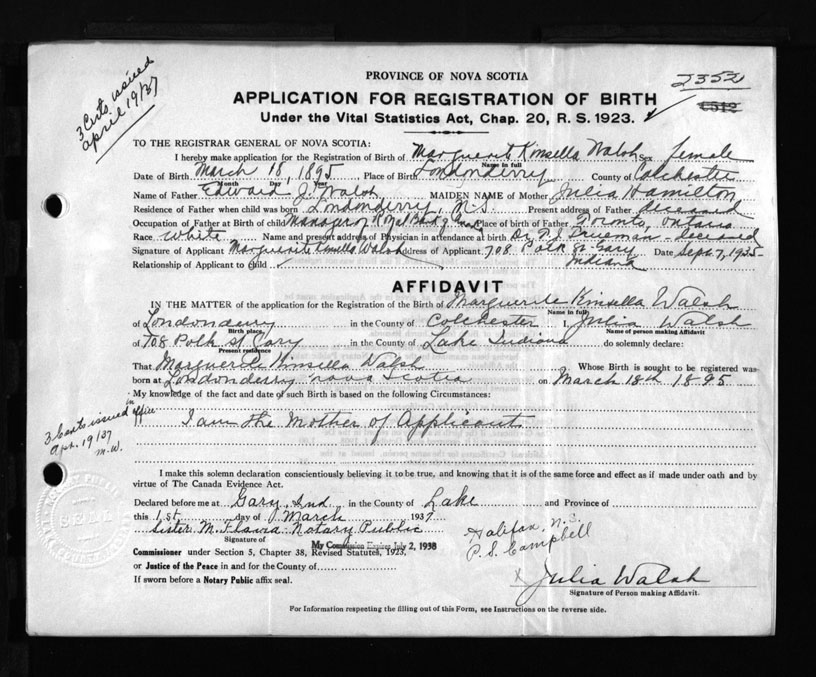 3 Certs. issued
april 19/37
PROVINCE OF NOVA SCOTIA
2352
APPLICATION FOR REGISTRATION OF BIRTH
Under the Vital Statistics Act, Chap. 20, R. S. 1923.
TO THE REGISTRAR GENERAL OF NOVA SCOTIA:
I hereby make application for the Registration of Birth of Marguerit Kinsella Walsh Sex female
Name in full
Date of Birth March 18, 1895 Place of Birth Londonderry County of Colchester
Month Day Year
Name of Father Edward J. Walsh MAIDEN NAME of Mother Julia Hamilton
Residence of Father when child was born Londonderry, N.S. Present address of Father deceased
Occupation of Father at Birth of child Manager of Royal Bank of Place of birth of Father Toronto, Ontario
Race white Name and present address of Physician in attendance at birth Dr. Trueman - deceased
Signature of Applicant Marguerite Kinsella Walsh Address of Applicant 708 Polk St. Gary Indiana Date Sept. 7, 1935
Relationship of Applicant to Child
AFFIDAVIT
IN THE MATTER of the application for the Registration of the Birth of Marguerite Kinsella Walsh
Name in full
of Londonderry in the County of Colchester I, Julia Walsh
Birth place, Name of person making Affidavit
of 708 Polk St Gary in the County of Lake Indiana do solemnly declare:
Present residence
That Marguerite Kinsella Walsh Whose Birth is sought to be registered was
born at Londonderry Nova Scotia on March 18th 1895.
My knowledge of the fact and date of such Birth is based on the following Circumstances:
I am the Mother of Applicant
3 Certs issued in office
Apr. 19/37
M.W.
I make this solemn declaration conscientiously believing it to be true, and knowing that it is of the same force and effect as if made under oath and by
virtue of The Canada Evidence Act.
Declared before me at Gary, Ind in the County of Lake and Province of
this 1st day of March 1937
Sister M. Flavia - Notary Public
Signature of
My Commission Expires July 2, 1938
Halifax, N.S.
P. S. Campbell
Commissioner under Section 5, Chapter 38, Revised Statutes, 1923,
or Justice of the Peace in and for the County of
If sworn before a Notary Public affix seal.
SEAL
X Julia Walsh
Signature of Person making Affidavit.
For Information respecting the filling out of this Form, see Instructions on the reverse side.